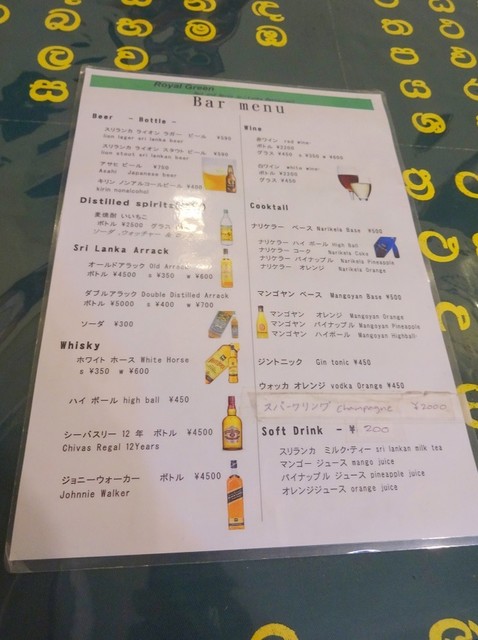 Royal Green
Bar menu
Beer - Bottle -
スリランカ ライオン ラガー ビール
lion lager sri lanka beer
スリランカ ライオン スタウト ビール
lion stout sri lankan beer
アサヒ ビール ¥700
Asahi Japanese beer
キリン ノンアルコールビール ¥400
kirin nonalcohol
Distilled spirits
麦焼酎 いいちこ
ボトル ¥2500 グラス
ソーダ、ウォッチャー
Sri Lanka Arrack
オールドアラック Old Arrack
ボトル ¥4500 s ¥350 w ¥600
ダブルアラック Double Distilled Arrack
ボトル ¥5000 s ¥400 w ¥700
ソーダ ¥300
Whisky
ホワイト ホース White Horse
s ¥350 w ¥600
ハイ ボール high ball ¥450
シーバスリー 12 年 ボトル ¥4500
Chivas Regal 12Years
ジョニーウォーカー ボトル ¥4500
Johnnie Walker
Wine
赤ワイン red wine
ボトル ¥2200
白ワイン white wine
ボトル ¥2200
グラス ¥450
Cooktail
ナリケラー ベース Narikela Base ¥500
ナリケラー ハイ ボール High Ball
ナリケラー コーク Narikela Coke
ナリケラー パイナップル Narikela Pineapple
ナリケラー オレンジ Narikela Orange
マンゴヤン ベース Mangoyan Base ¥500
マンゴヤン オレンジ Mangoyan Orange
マンゴヤン パイナップル Mangoyan Pineapple
マンゴヤン ハイボール Mangoyan Highball
ジントニック Gin tonic ¥450
ウォッカ オレンジ vodka Orange ¥450
スパークリング Champagne ¥2000
Soft Drink - ¥ 200
スリランカ ミルク・ティー sri lankan milk tea
マンゴー ジュース mango juice
パイナップル ジュース pineapple juice
オレンジジュース orange juice